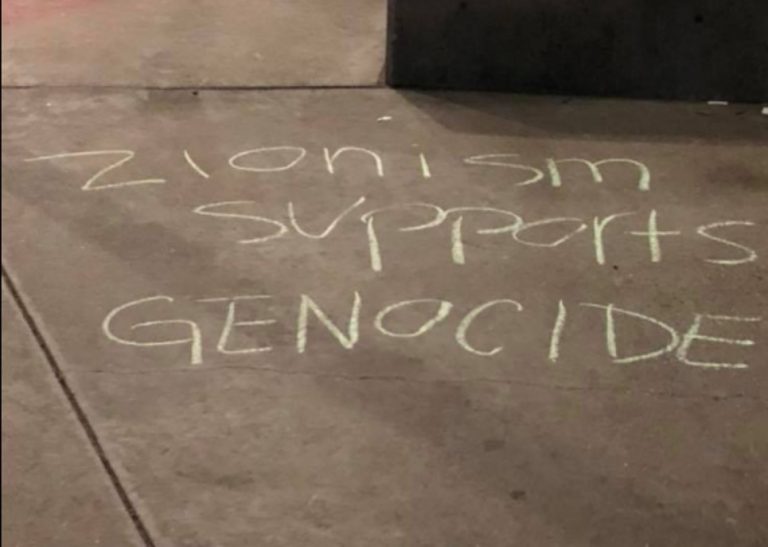 zionism
supports
GENOCIDE